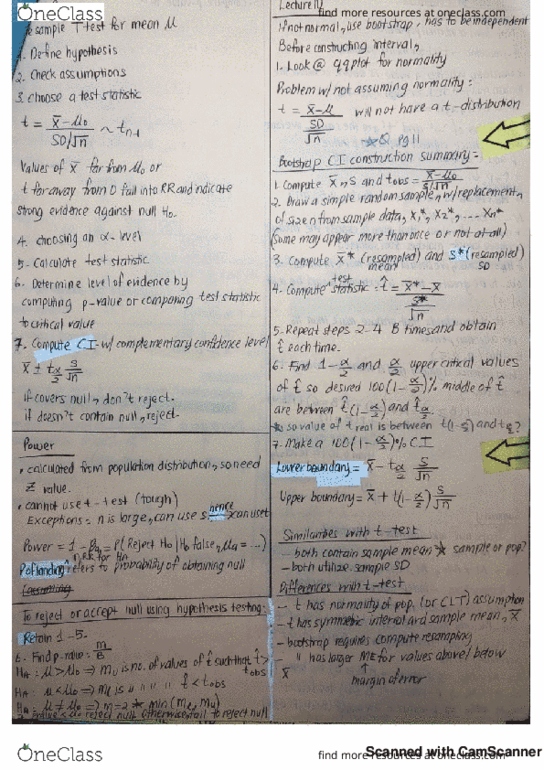 OneClass
find more resources at oneclass.com
sample T-test for mean μ
1. Define hypothesis
2. Check assumptions
3. choose a test statistic
t = x̄-μ₀ / SD/√n ~ tn-1
Values of x̄ far from μ₀ or
t far away from 0 fall into RR and indicate
strong evidence against null H₀.
4. choosing an α-level
5. Calculate test statistic
6. Determine level of evidence by
computing p-value or comparing test statistic
to critical value
7. Compute CI w/ complementary confidence level
x̄ ± tα/2 S/√n
if covers null, don't reject.
if doesn't contain null, reject.
Power
• calculated from population distribution, so need
Z value.
• cannot use t-test (tough)
Exceptions = n is large, can use s hence can use t
Power = 1 - = P( Reject H₀ | H₀ false, μa = ...)
refers to probability of obtaining null
To reject or accept null using hypothesis testing:
Retain 1-5.
6. Find p-value = m/B
HA: μ > μ₀ ⇒ mu is no. of values of t̂ such that t̂ > tobs
HA: μ < μ₀ ⇒ mL is " " " " t̂ < tobs
HA: μ ≠ μ₀ ⇒ m = 2 * min(mL, mu)
reject null otherwise fail to reject null
Lecture
if not normal, use bootstrap, has to be independent
Before constructing interval,
1. Look @ qqplot for normality
Problem w/ not assuming normality:
t = x̄-μ / SD/√n will not have a t-distribution
Q pg 11
Bootstrap CI construction summary=
1. Compute x̄, s and tobs = x̄-μ₀ / s/√n
2. Draw a simple random sample, w/ replacement,
of size n from sample data, x₁*, x₂*, .... xn*
(some may appear more than once or not at all)
3. Compute x̄* (resampled) mean and s* (resampled) SD
4. Compute test statistic = t̂ = x̄*-x̄ / s*/√n
5. Repeat steps 2-4 B times and obtain
t̂ each time.
6. Find 1-α/2 and α/2 upper critical values
of t̂ so desired 100(1-α/2)% middle of t̂
are between t̂(1-α/2) and t̂α/2
* so value of t real is between t(1-α/2) and tα/2?
7. Make a 100(1-α/2)% C.I
Lower boundary = x̄ - tα/2 S/√n
Upper boundary = x̄ + t(1-α/2) S/√n
Similarities with t-test
- both contain sample mean * sample or pop?
- both utilize sample SD
Differences with t-test
- t has normality of pop. (or CLT) assumption
- t has symmetric interval around sample mean, x̄
- bootstrap requires compute resampling
- " has larger ME for values above/below
x̄
margin of error
OneClass
find more resources at oneclass.com
Scanned with CamScanner